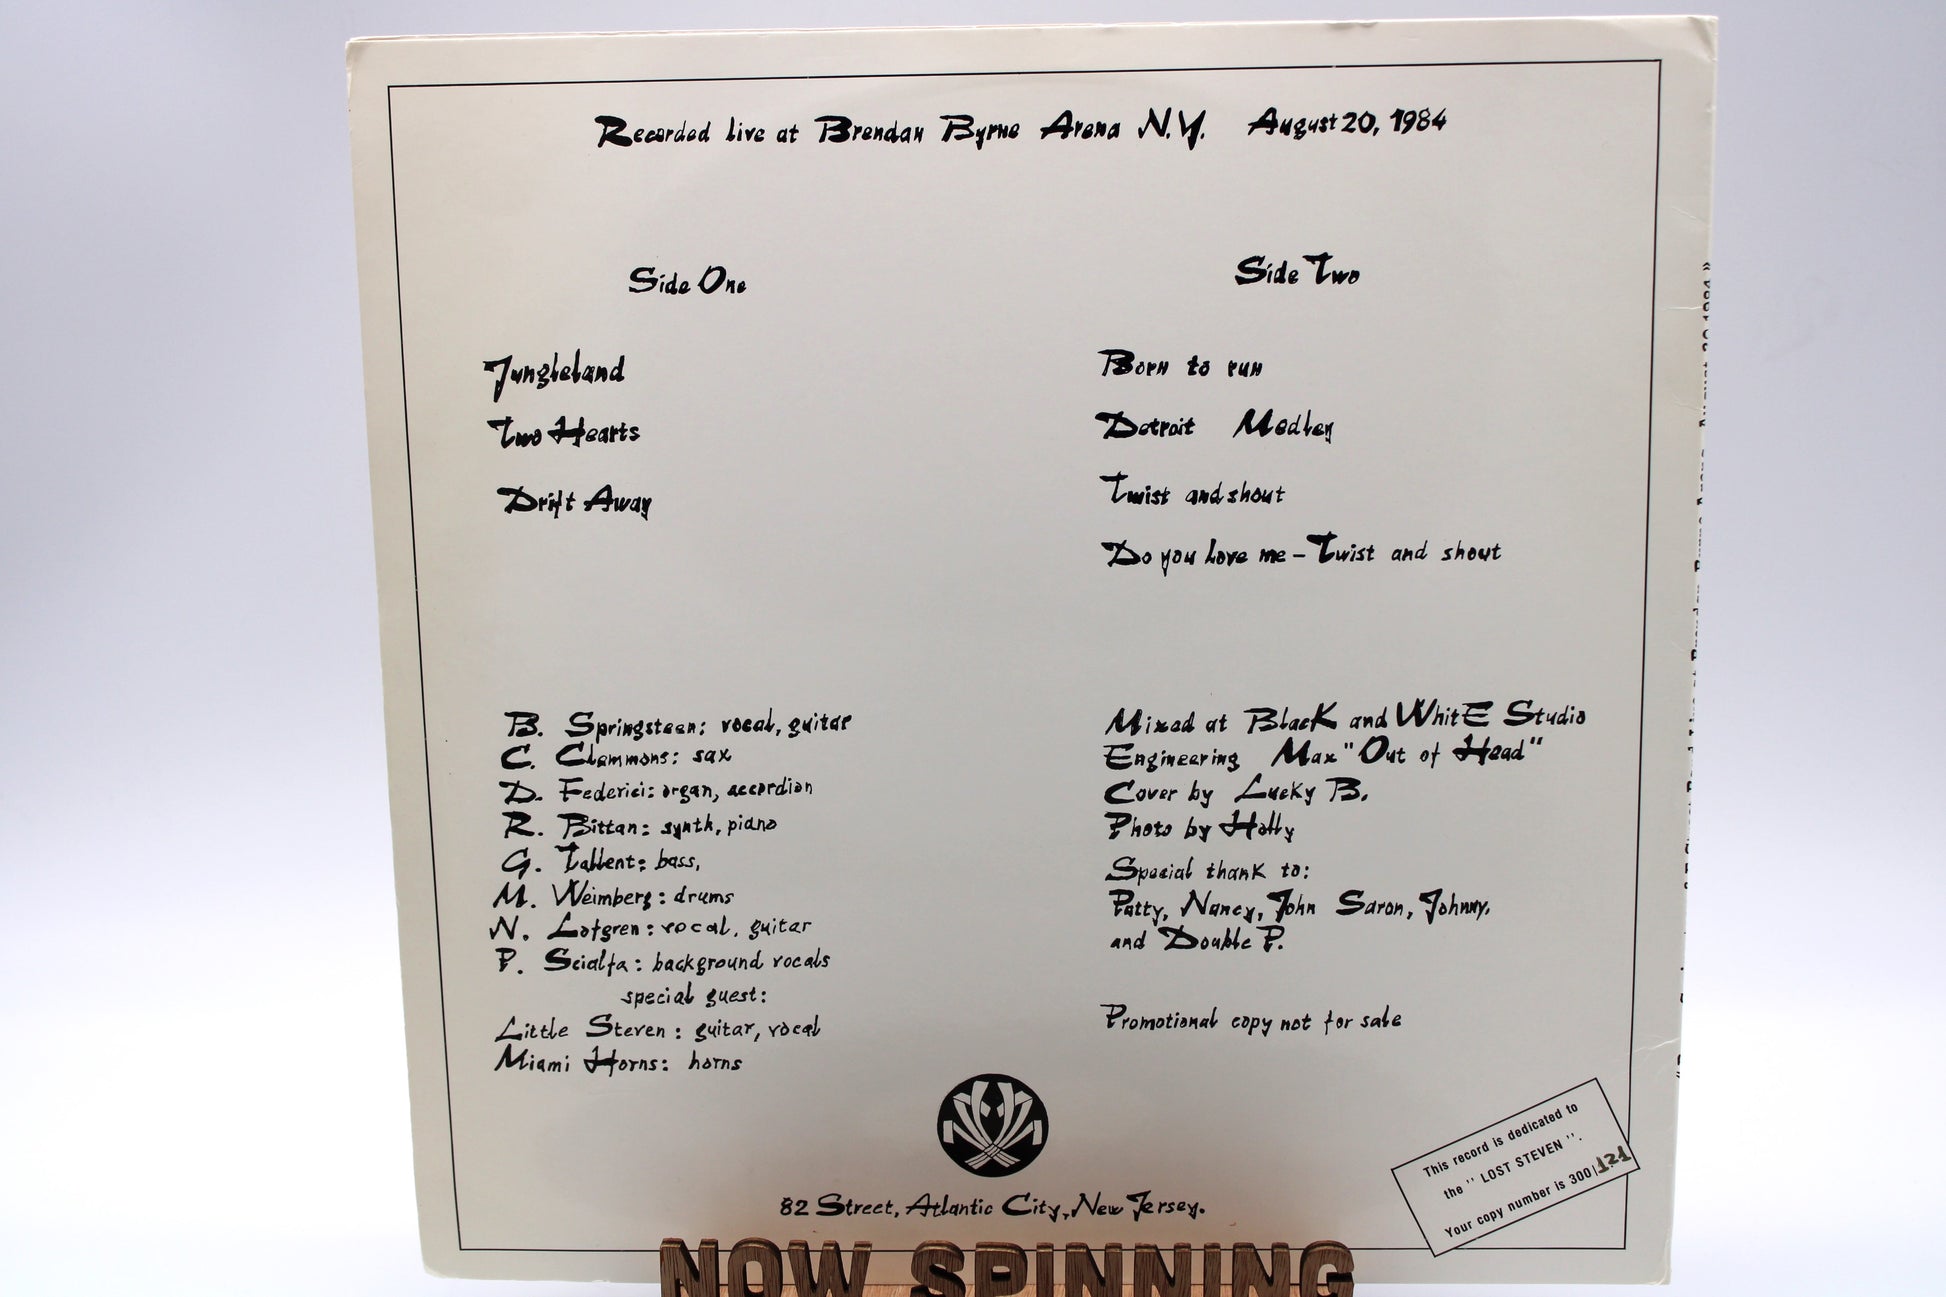 Recorded live at Brendan Byrne Arena N.Y. August 20, 1984
Side One
Jungleland
Two Hearts
Drift Away
Side Two
Born to run
Detroit Medley
Twist and shout
Do you love me - Twist and shout
B. Springsteen: vocal, guitar
C. Clemmons: sax
D. Federici: organ, accordion
R. Bittan: synth, piano
G. Tallent: bass,
M. Weimberg: drums
N. Lofgren: vocal, guitar
P. Scialfa: background vocals
special guest:
Little Steven: guitar, vocal
Miami Horns: horns
Mixed at BlacK and WhitE Studio
Engineering Max "Out of Head"
Cover by Lucky B.
Photo by Holly
Special thank to:
Patty, Nancy, John Saron, Johnny,
and Double P.
Promotional copy not for sale
82 Street, Atlantic City, New Jersey.
This record is dedicated to
the " LOST STEVEN ".
Your copy number is 300|121
August 20 1984"
NOW SPINNING